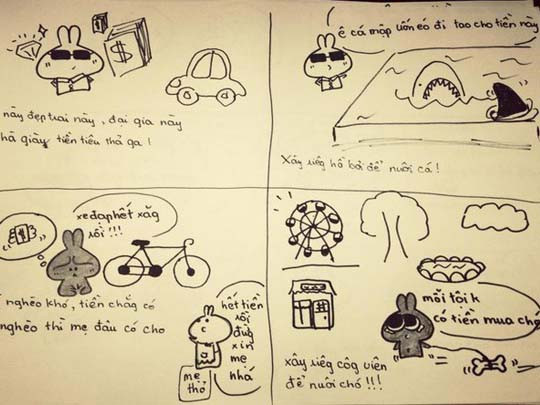 $
$
này đẹp trai này, đại gia này
hả giày tiền tiêu thả ga!
ê cá mập uốn éo đi tao cho tiền này
Xây riêg hồ bơi để nuôi cá!
$
xe đạp hết xăg
rồi!!!
nghèo khó, tiền chẳg có
nghèo thì mẹ đâu có cho
hết tiền
rồi
đừg
xin
mẹ
nhá
mẹ
thỏ
mỗi tội k
có tiền mua chó
xây riêg côg viên
để nuôi chó!!!